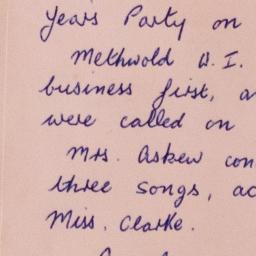 Years Party on
Methwold W.I.
business first, a
were called on
Mrs. Askew con
three songs, ac
Miss. Clarke.